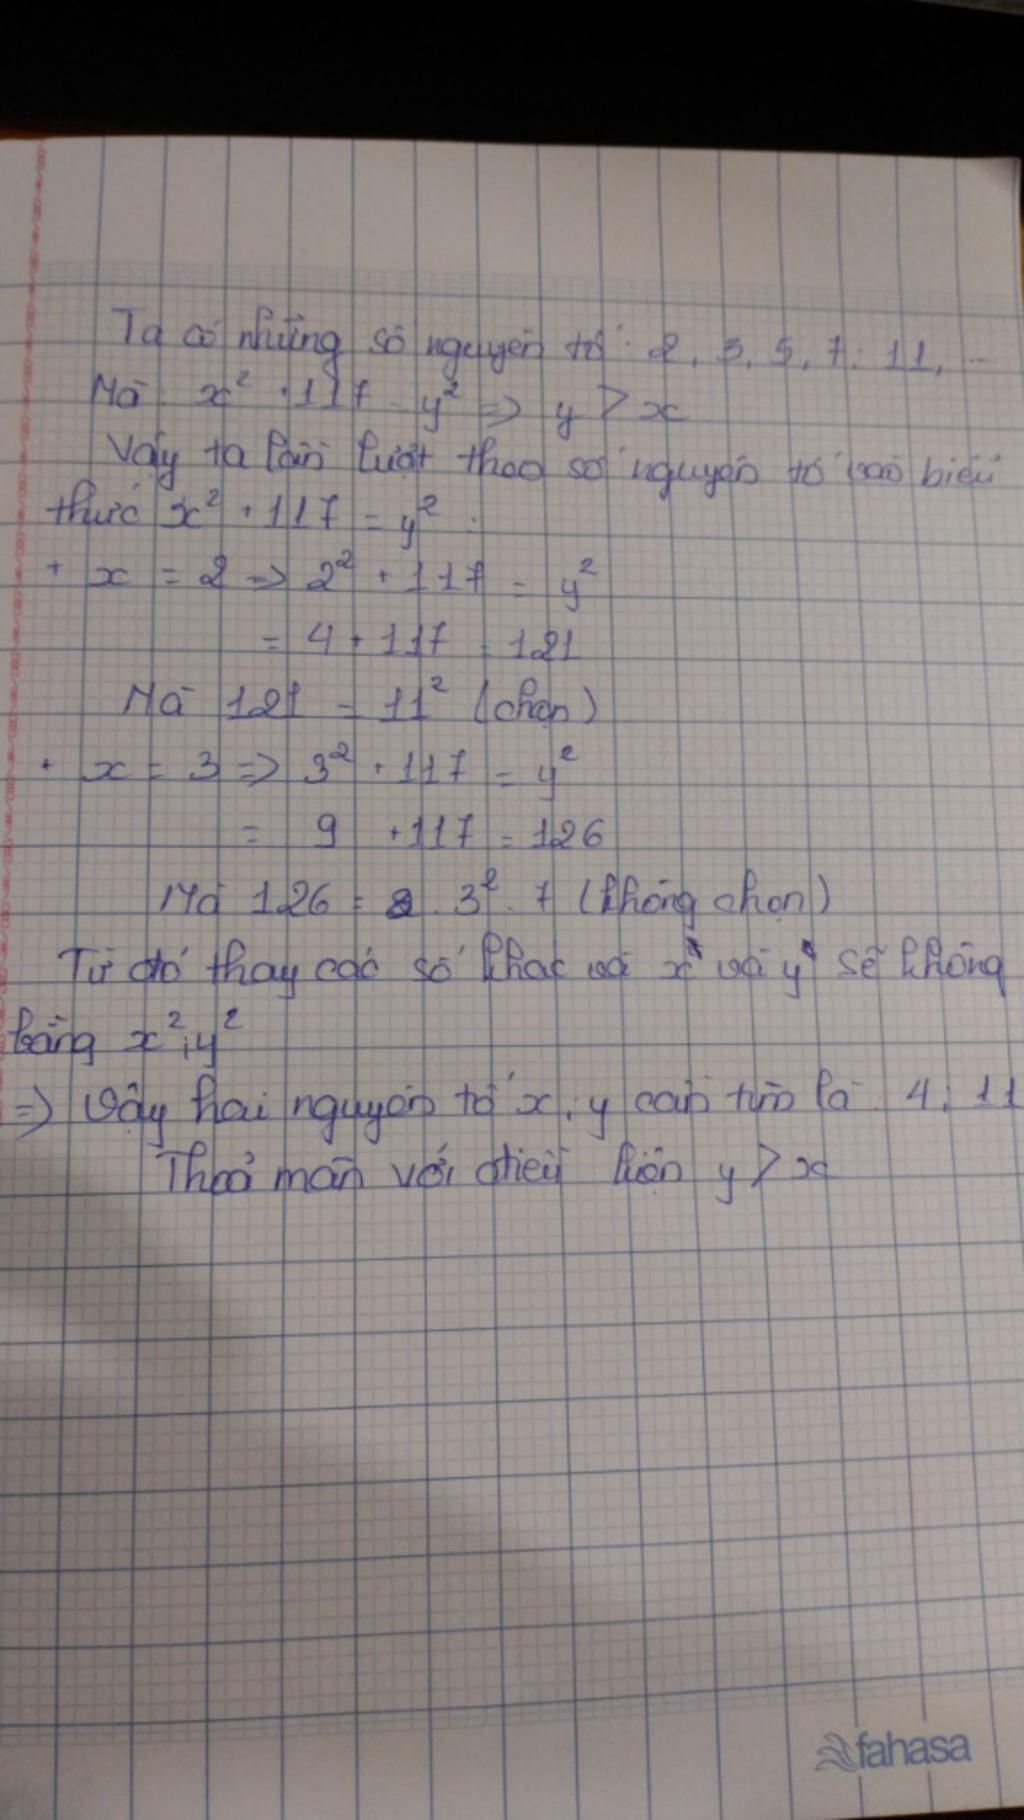 Ta có những số nguyên tố: 2, 3, 5, 7; 11, ...
Mà: x² + 117 = y² => y > x
Vậy ta lần lượt theo số nguyên tố vào biểu
thức x² + 117 = y² :
+ x = 2 => 2² + 117 = y²
= 4 + 117 = 121
Mà 121 = 11² (chọn)
+ x = 3 => 3² + 117 = y²
= 9 + 117 = 126
Mà 126 = 2 . 3² . 7 (không chọn)
Từ đó thay các số khác và x và y sẽ không
bằng x²; y²
=> Vậy hai nguyên tố x; y cần tìm là 4; 11
Thoả mãn với điều kiện y > x
fahasa